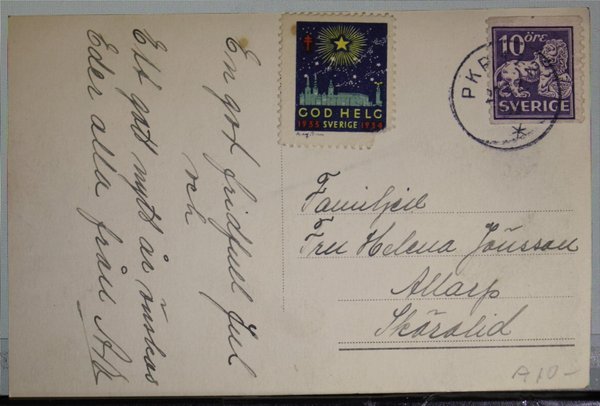 En god fridfull Jul
och
Ett gott nytt år önskas
Eder alla från
GOD HELG
1933 SVERIGE 1934
10 ÖRE
SVERIGE
PKP
Familjen
Fru Helena Jönsson
Allarp
A10-